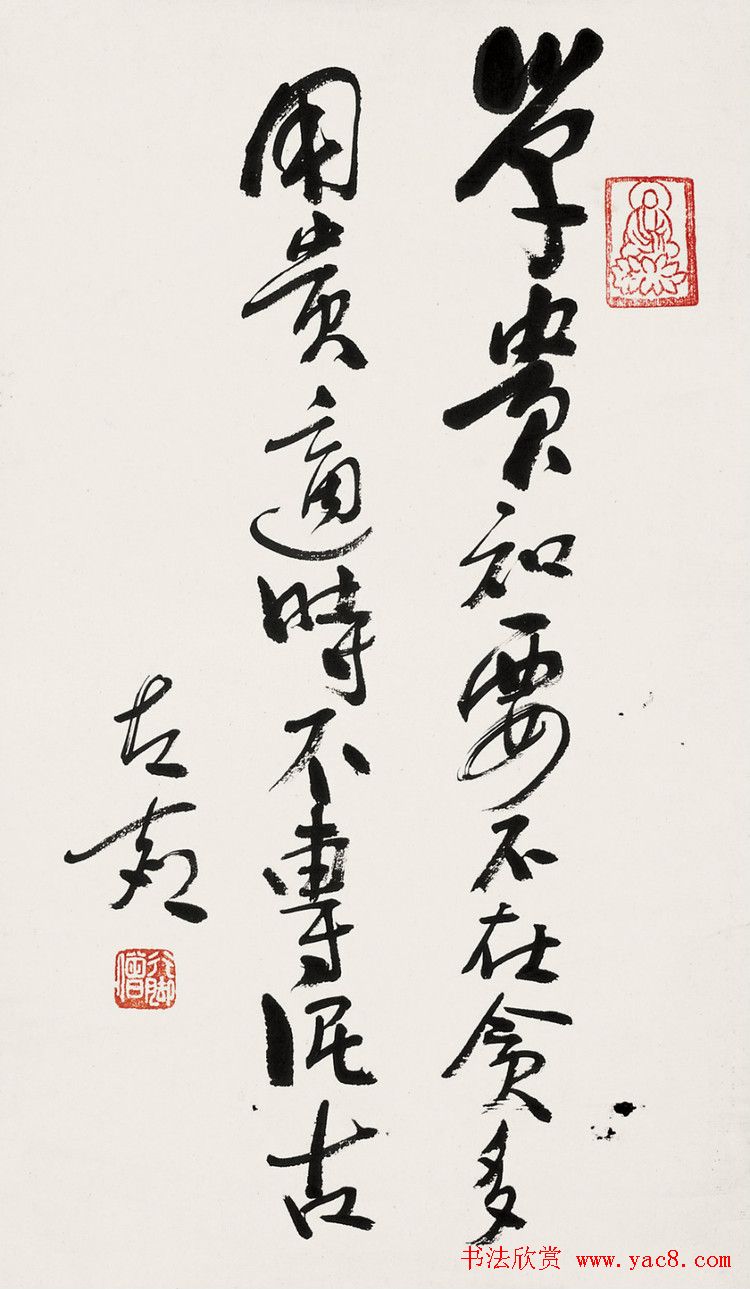 學貴知要不在貪多
用貴適時不專泥古
行腳僧
书法欣赏 www.yac8.com